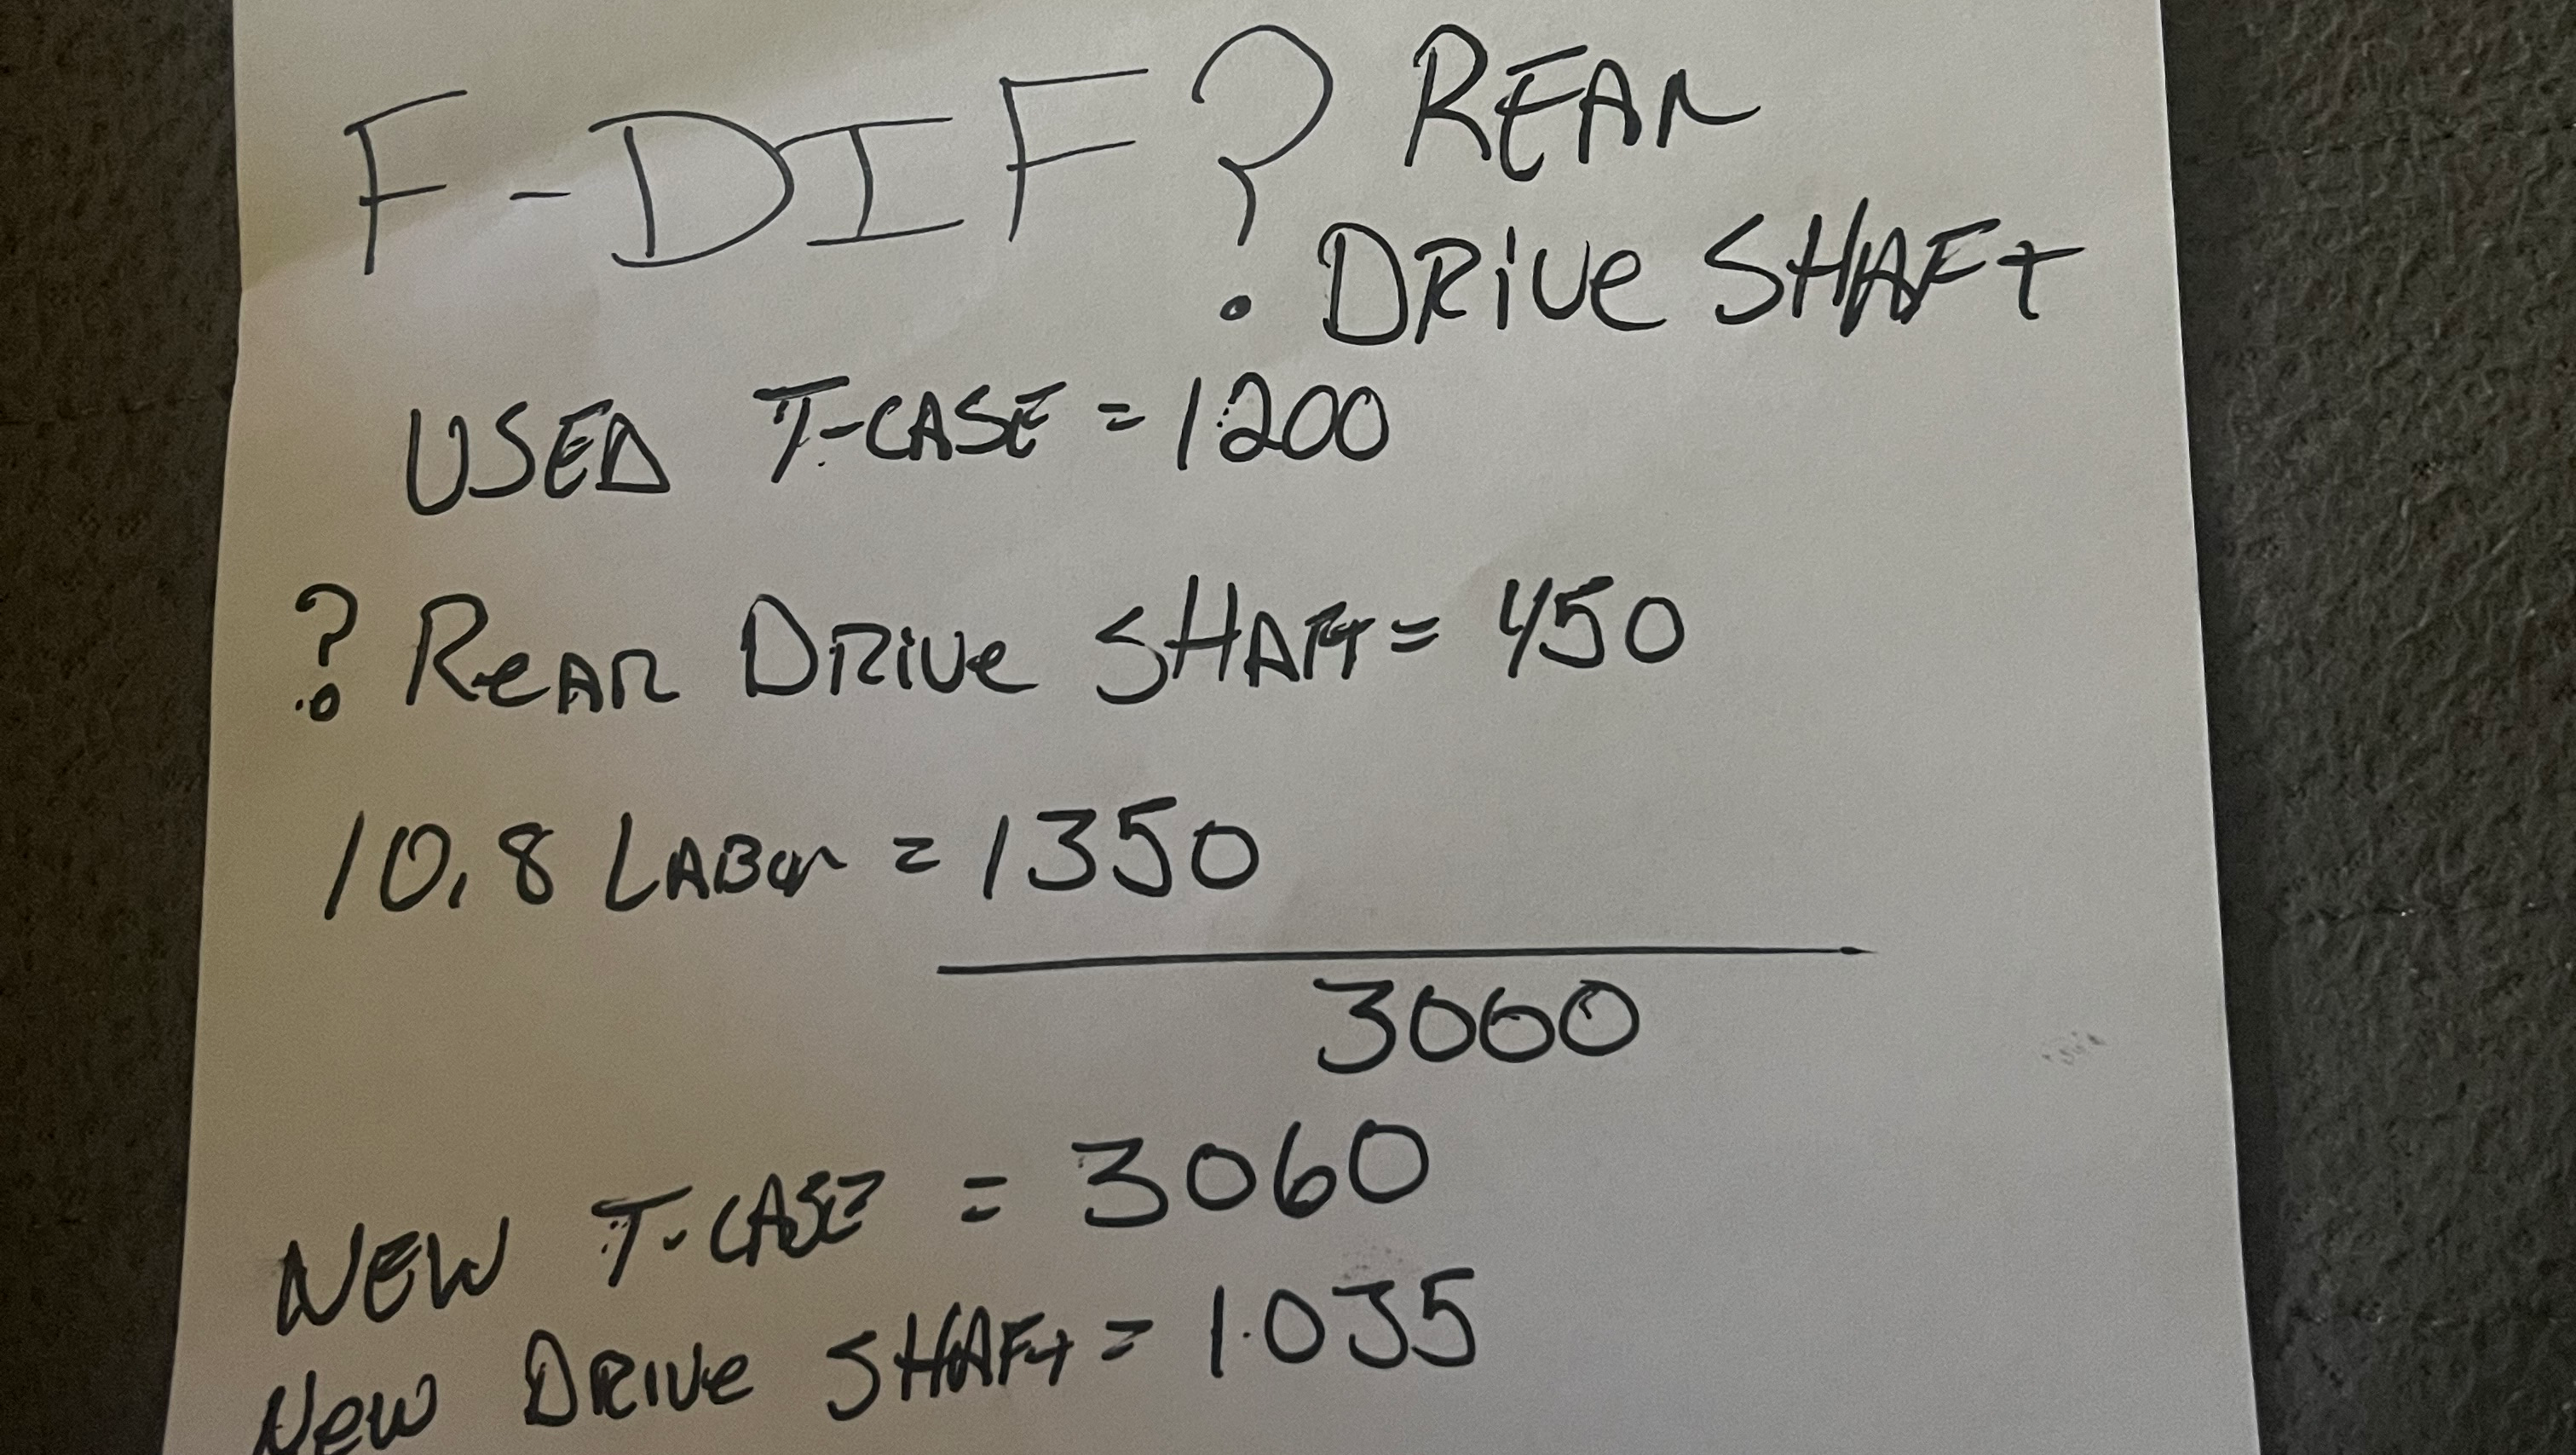 F-DIF? REAR
DRIVE SHAFT
USED T-CASE = 1200
? REAR DRIVE SHAFT = 450
10.8 LABOR = 1350
3060
NEW T-CASE = 3060
NEW DRIVE SHAFT = 1035